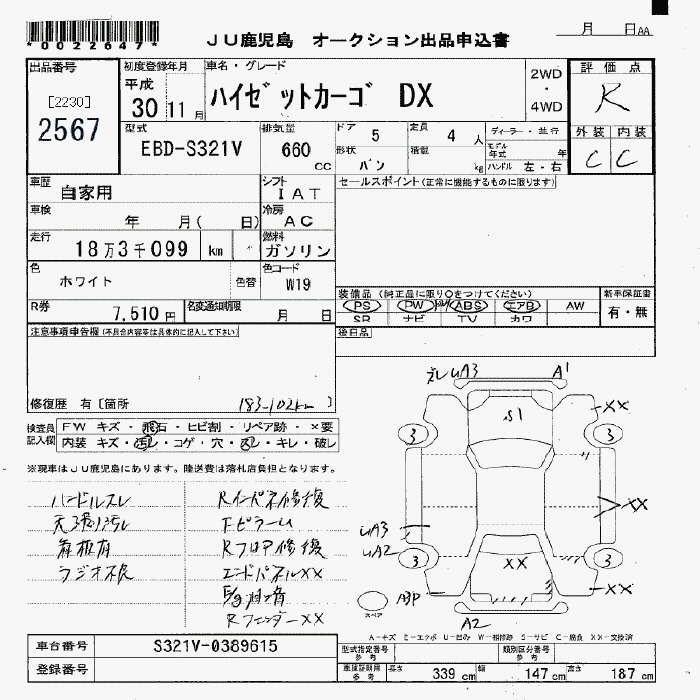 *0022647*
JU鹿児島 オークション出品申込書
月 日AA
出品番号
[2230]
2567
初度登録年月
平成
30 11 月
車名・グレード
ハイゼットカーゴ DX
2WD
・
4WD
評価点
R
外装 内装
C C
型式
EBD-S321V
排気量
660 CC
ドア 5
定員 4 人
形状 バン
積載 kg
ディーラー・並行
モデル年式 年
ハンドル 左・右
車歴
自家用
シフト
IAT
セールスポイント(正常に機能するものに限ります)
車検
年 月( 日)
冷房
AC
走行
18万3千099 km
燃料
ガソリン
色
ホワイト
色替
色コード
W19
R券
7,510円
名変通知期限
月 日
装備品(純正品に限り○をつけてください)
PS PW ABS エアB AW
SR ナビ TV カワ
新車保証書
有・無
後日品
注意事項申告欄(不具合内容等は具体的に記入して下さい)
修復歴 有〔箇所 183-102km 〕
検査員記入欄
FW キズ・飛石・ヒビ割・リペア跡・×要
内装 キズ・汚れ・コゲ・穴・スレ・キレ・破レ
※現車はJU鹿児島にあります。陸送費は落札店負担となります。
ハンドルスレ
天張汚レ
ラジオ不良
Rインパネ修復
Fピラーム
Rフロア修復
エンドパネルXX
RフェンダーXX
A3
A1
S1
XX
3
3
XX
A3
A2
XX
3
3
XX
A3P
スペア
A2
A-キズ E-エクボ U-凹み W-補修跡 S-サビ C-腐食 XX-交換済
車台番号
S321V-0389615
登録番号
型式指定番号
参考
類別区分番号
参考
車検証期限
参考
長さ 339 cm
幅 147 cm
高さ 187 cm